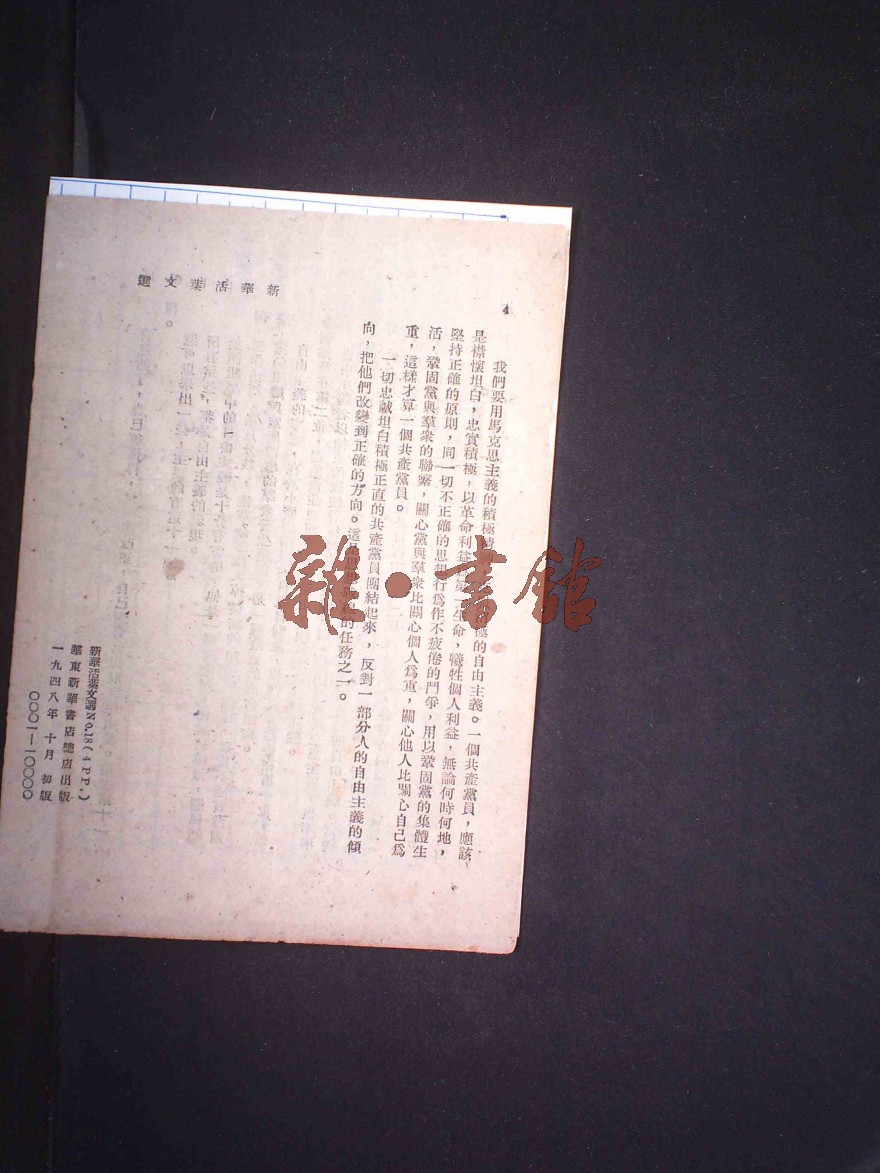 新華活葉文選
4
我們要用馬克思主義的積極極的自由主義。一個共產黨員，應該
是襟懷坦白，忠實積極，以革命利益第一生命，犧牲個人利益，無論何時何地，
堅持正確的原則，同一切不正確的思想行爲作不疲倦的鬥爭，用以鞏固黨的集體生
活，鞏固黨與羣衆的聯繫，關心黨與羣衆比關心個人爲重，關心他人比關心自己爲
重，這樣才算一個共產黨員。
一切忠誠坦白積極正直的共產黨員團結起來，反對一部分人的自由主義的傾
向，把他們改變到正確的方向。這是的任務之一。
新華活葉文選NO.18(4PP.)
華東新華書店總店出版
一九四八年十月 初版
0001—10000
雜·書館